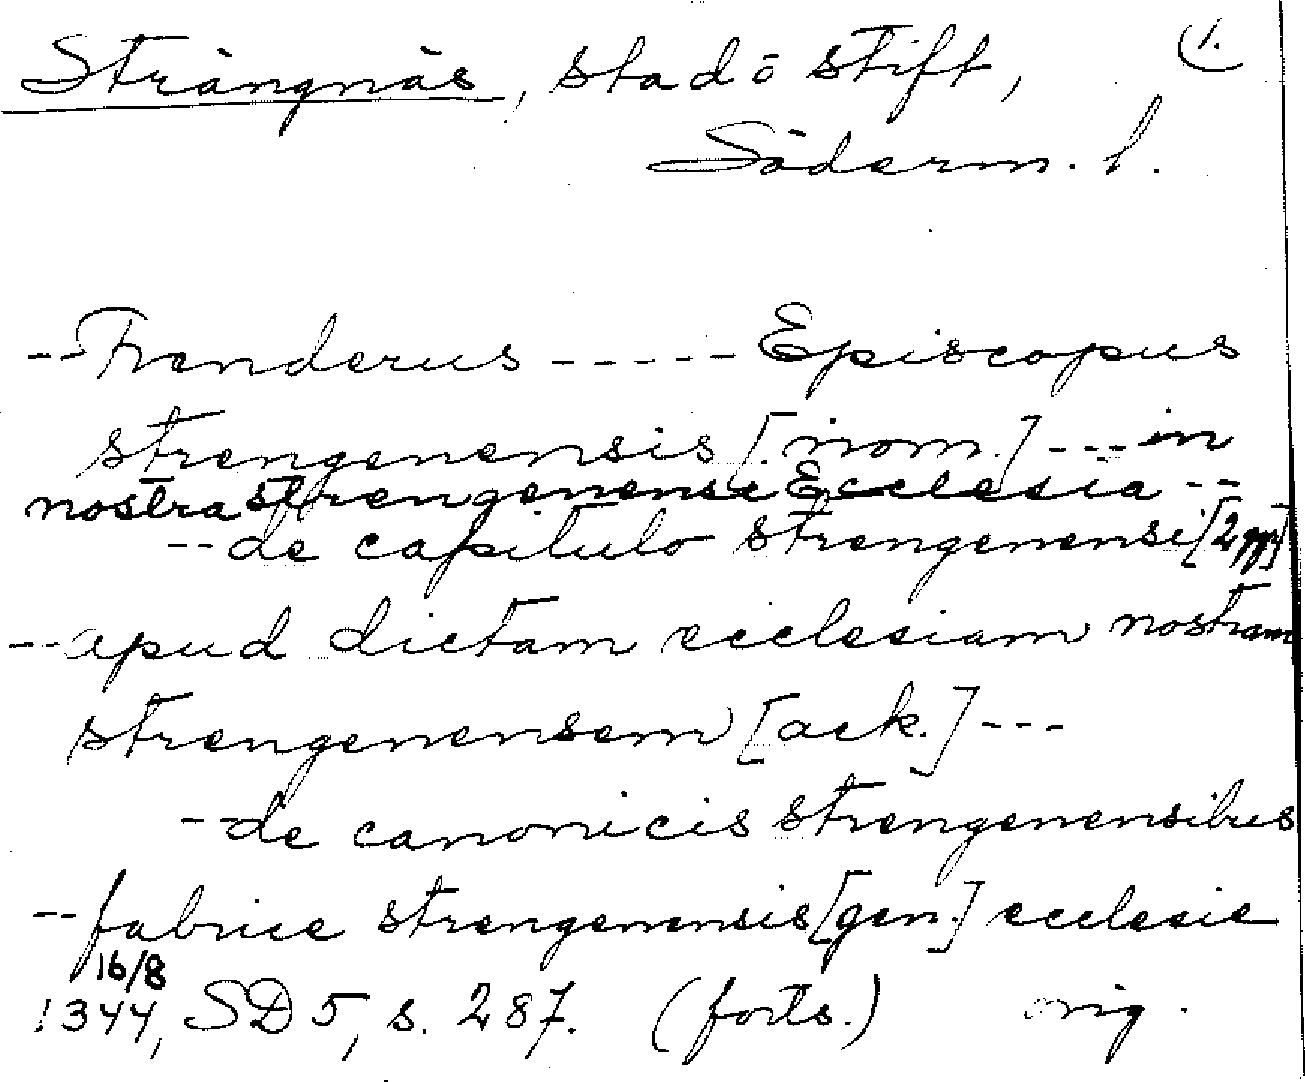 Strängnäs, stad ö stift, (1.
Söderm. l.
-- Frenderus ----- Episcopus
strengenensis [nom.] --- in
nostra strengenensi Ecclesia --
-- de capitulo strengenensi [2 ggr]
-- apud dictam ecclesiam nostram
strengenensem [ack.] ---
-- de canonicis strengenensibus
-- fabrice strengenensis [gen.] ecclesie
16/8
1344, SD 5, s. 287. (forts.) orig.